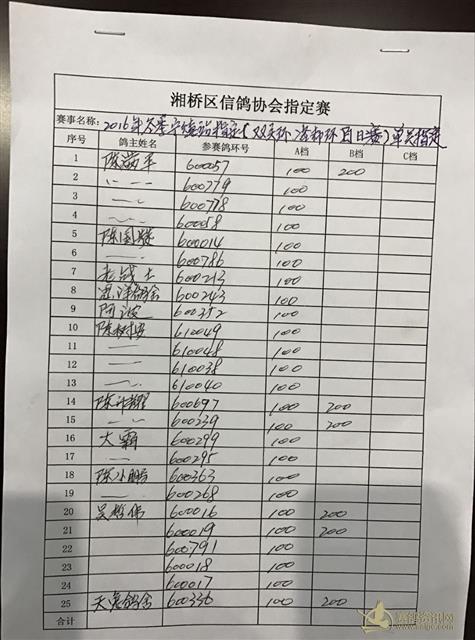 湘桥区信鸽协会指定赛
赛事名称: 2016年冬季 指定(双 环 杯 日赛)单关指定
序号 鸽主姓名 参赛鸽环号 A档 B档 C档
1 陈 平 600057 100 200
2 600779 100
3 600778 100
4 600058 100
5 陈国 600014 100
6 600786 100
7 老战士 600213 100
8 鸽舍 600243 100
9 阿波 600352 100
10 陈树 610049 100
11 610048 100
12 610038 100
13 610040 100
14 陈 600697 100 200
15 600239 100 200
16 大霸 600299 100
17 600295 100
18 陈小鹏 600363 100
19 600268 100
20 吴 伟 600016 100 200
21 600019 100 200
22 600791 100
23 600018 100
24 600017 100
25 天 鸽舍 600336 100 200
合计
赛鸽资讯网